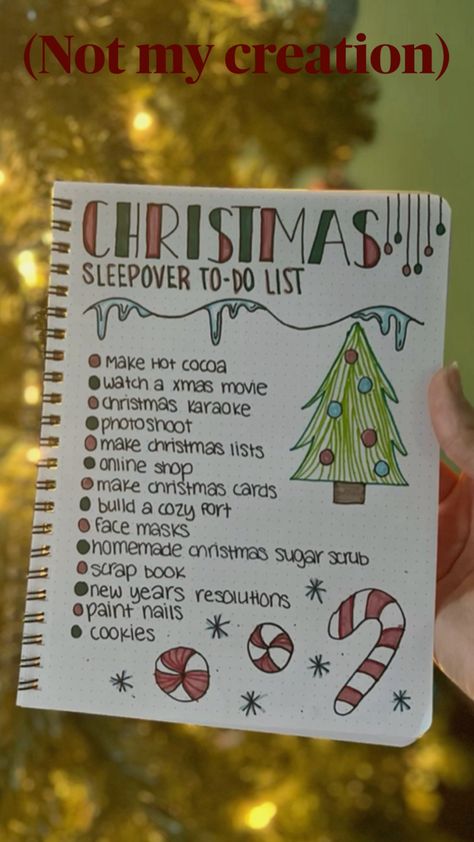 (Not my creation)
CHRISTMAS
SLEEPOVER TO-DO LIST
MAKE HOT COCOA
watch a xmas movie
christmas karaoke
photoshoot
make christmas lists
online shop
make christmas cards
build a cozy fort
face masks
homemade christmas sugar scrub
scrap book
new years resolutions
paint nails
cookies